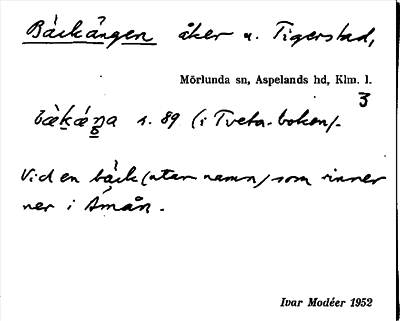 Bäckängen åker u. Tigerstad,
Mörlunda sn, Aspelands hd, Klm. l.
3
s. 89 (i Tveta-boken).
Vid en bäck (utan namn) som rinner
ner i Åmån.
Ivar Modéer 1952